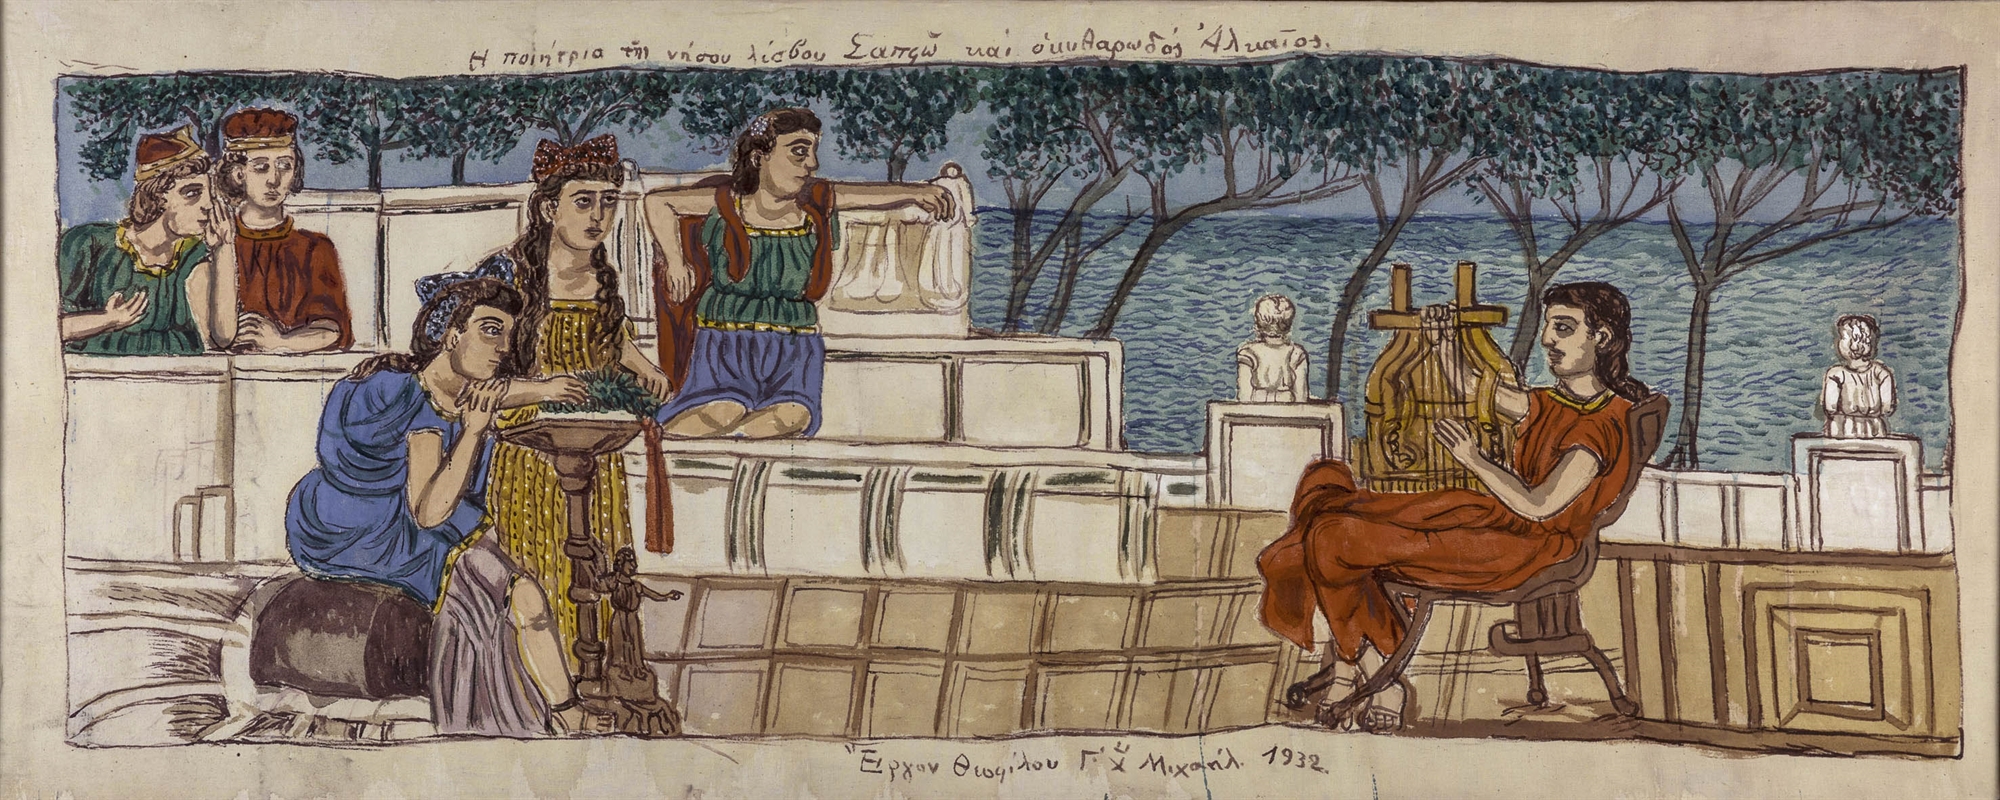 Η ποιήτρια τῆς νήσου λέσβου Σαπφῶ καὶ ὁκυθαρωδός Ἀλκαῖος.
Ἔργον Θεοφίλου Γ. χ Μιχαήλ. 1932.